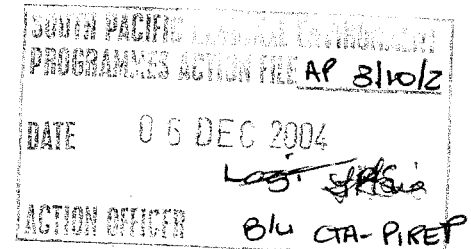 SOUTH PACIFIC REGIONAL ENVIRONMENT
PROGRAMMES ACTION FILE AP 3/10/2
DATE 06 DEC 2004
ACTION OFFICER B/U CTA-PIREP